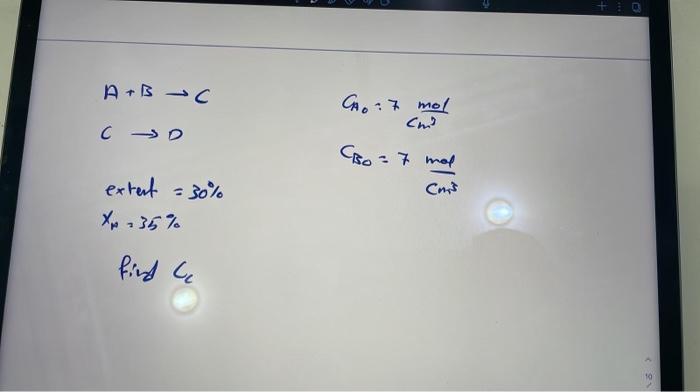 A + B → C
C → D
extent = 30%
X_A = 35%
find C_c
C_A0 = 7 mol/cm³
C_B0 = 7 mol/cm³
10